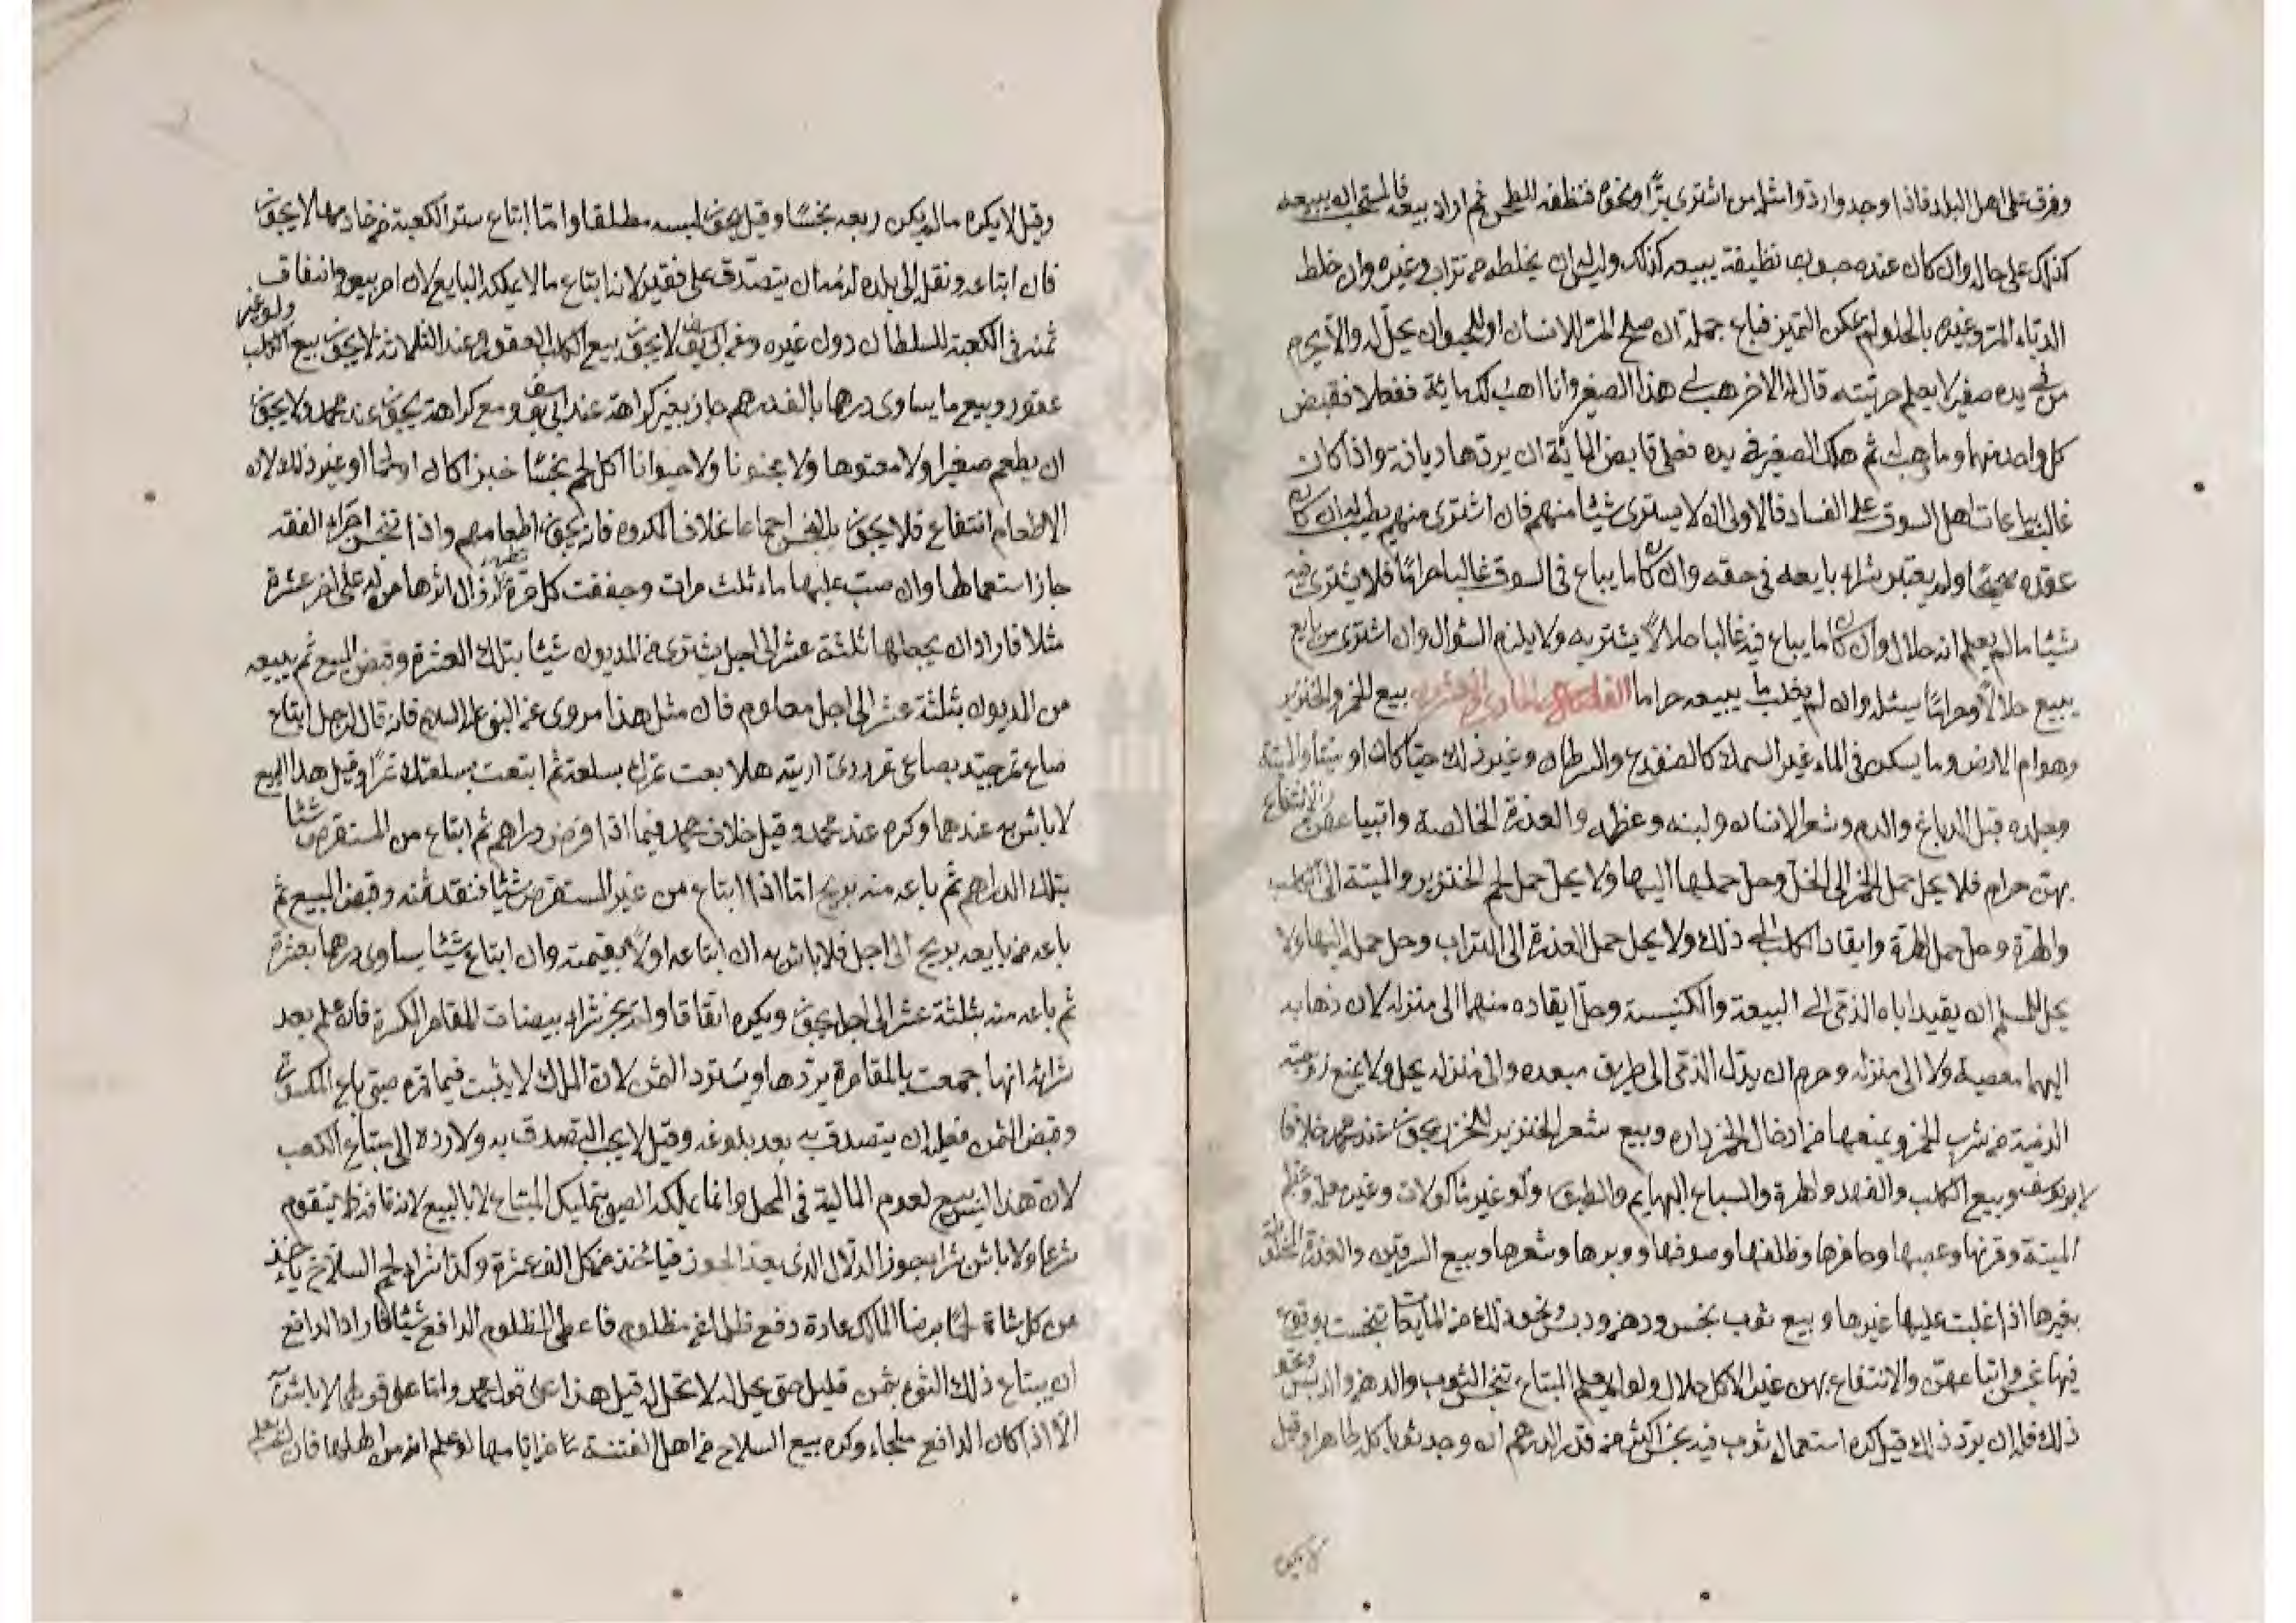 وفرق على اهل البلد فاذا وجدوا ردوا مثله من اشترى برّا ونحوه فنظفه للطحن ثم اراد بيعه فالمستحب ان يبيعه
كذلك على حاله وان كان عنده حبوب نظيفة يبيعه كذلك وليس له ان يخلطه من تراب وغيره وان خلط
المر وغيره بالحلو لم يمكن التميز فباع جملة ان صلح المر للانسان او للحيوان يحل له والا يحرم
من في يده صغير لا يعلم حريته قال له الاخر هب لي هذا الصغير وانا اهب لك مائة ففعلا فقبض
كل واحد منهما ما وهب ثم هلك الصغير في يده فعلى قابض المائة ان يردها ديانة واذا كان
غالب بياعات اهل السوق على الفساد فالاولى ان لا يشترى شيئا منهم فان اشترى منهم يطيب له ان كان
عقده صحيحا ولم يعتبر شراء بايعه في حقه وان كان ما يباع في السوق غالبا حراما فلا يشترى فيه
شيئا ما لم يعلم انه حلال وان كان ما يباع فيه غالبا حلالا يشتريه ولا يلزم السؤال وان اشترى من بايع
يبيع حلالا وحراما يسئله وان لم يغلب ما يبيعه حراما الفصل الحادي والعشرون بيع الخمر والخنزير
وهوام الارض وما يسكن في الماء غير السمك كالضفدع والسرطان وغير ذلك حيا كان او ميتا والميتة
وجلده قبل الدباغ والدم وشعر الانسان ولبنه وعظمه والعذرة الخالصة واتبياعهن والانتفاع
بهن حرام فلا يحل حمل الخمر الى الخل وحل حملها اليها ولا يحل حمل لحم الخنزير والميتة الى الكلب
والهرة وحل حمل الهرة وايقاد الكلب الى ذلك ولا يحل حمل العذرة الى التراب وحل حمله اليها ولا
يحل للمسلم ان يقيد اباه الذمى الى البيعة والكنيسة وحل ايقاده منهما الى منزله لان ذهابه
اليهما معصية ولا الى منزله وحرم ان يدل الذمى الى طريق معبده والى منزله يحل ولا يمنع زوجته
الذمية من شرب الخمر ويمنعها من ادخال الخمر داره وبيع شعر الخنزير للخرز يجوز عند محمد خلافا
لابي يوسف وبيع الكلب والفهد والهرة والسباع البهايم والطيور ولو غير مأكولات وغير معلم وعظم
الميتة وقرنها وعصبها وحافرها وظلفها وصوفها ووبرها وشعرها وبيع السرقين والعذرة المختلطة
بغيرها اذا غلبت عليها غيرها وبيع ثوب نجس ودهن ودبس ونحو ذلك من المايعات تنجست بوقوع
فيها نجس واتباعهن والانتفاع بهن غير الاكل حلال ولو لم يعلم المبتاع تنجس الثوب والدهن والدبس ونحو
ذلك فله ان يرد ذلك قيل كره استعمال ثوب فيه نجس اكثر من قدر الدرهم ان وجد ثوبا كله طاهرا وقيل
لا يكره
وقيل لا يكره ما لم يكن ربعه نجسا وقيل يجوز لبسه مطلقا واما ابتاع ستر الكعبة من خادمها لا يجوز
فان ابتاعه ونقل الى بلده لزمه ان يتصدق على فقير لانه ابتاع ما لا يملكه البايع لان امر بيعه وانفاق
ثمنه في الكعبة للسلطان دون غيره وعن ابي يوسف لا يجوز بيع الكلب العقور وعند الثلاثة لا يجوز بيع الكلب ولو غير
عقور وبيع ما يساوى درهما بالف درهم جاز بغير كراهة عند ابي يوسف ومع كراهة يجوز عند محمد ولا يجوز
ان يطعم صغيرا ولا معتوها ولا مجنونا ولا حيوانا اكل لحم نجسا خبزا كان او لحما او غير ذلك لان
الاطعام انتفاع فلا يجوز بالنجس اجماعا بخلاف المكروه فانه يجوز اطعامهم واذا تنجس اجراء الفقه
جاز استعمالها وان صب عليها ماء ثلث مرات وجففت كل مرة تطهر اذ زال اثرها من له على اخر عشرة
مثلا فاراد ان يجعلها ثلثة عشر الى اجل يشترى من المديون شيئا بتلك العشرة وقبض المبيع ثم يبيعه
من المديون بثلثة عشر الى اجل معلوم فان مثل هذا مروى عن النبي عليه السلام فانه قال لرجل ابتاع
صاع تمر جيد بصاعى تمر ردى اربيته هلا بعت تمرك بسلعة ثم ابتعت بسلعتك تمرا وقيل هذا البيع
لا باس به عندهما وكره عند محمد وقيل خلاف محمد فيما اذا اقرض دراهم ثم ابتاع من المستقرض شيئا
بتلك الدراهم ثم باعه منه بربح اما اذا ابتاع من غير المستقرض شيئا فنقد ثمنه وقبض المبيع ثم
باعه من بايعه بربح الى اجل فلا باس به ان ابتاعه اولا بقيمته وان ابتاع شيئا يساوى درهما بعشرة
ثم باعه منه بثلثة عشر الى اجل يجوز ويكره اتفاقا ولم يجز شراء بيضات المقامر المكسرة فان علم بعد
شرائه انها جمعت بالمقامرة يردها ويسترد الثمن لان الملك لا يثبت فيما قمره صبى باع المكسور
وقبض الثمن فعليه ان يتصدق به بعد بلوغه وقيل لا يجب التصدق به ولا رده الى مبتاع الكعب
لان هذا ليس بيع لعدم المالية في المحل وانما يملكه الصبي بتمليك المبتاع لا بالبيع لانه
شرعا ولا باس شرا بجوز الدلال الذى يعد الجوز فياخذ من كل الف عشرة وكذا شراء لحم السلاخ ياخذ
من كل شاة لحما برضا المالك عادة دفع ظلما عن مظلوم فاعطى المظلوم الدافع شيئا فاراد الدافع
ان يبتاع ذلك الثوم بثمن قليل حتى يحل له لا تحل له قيل هذا على قول محمد واما على قولهما لا باس به
الا اذا كان الدافع ملجاء وكره بيع السلاح من اهل الفتنة لو علم انه من اهلها فان لم يعلم